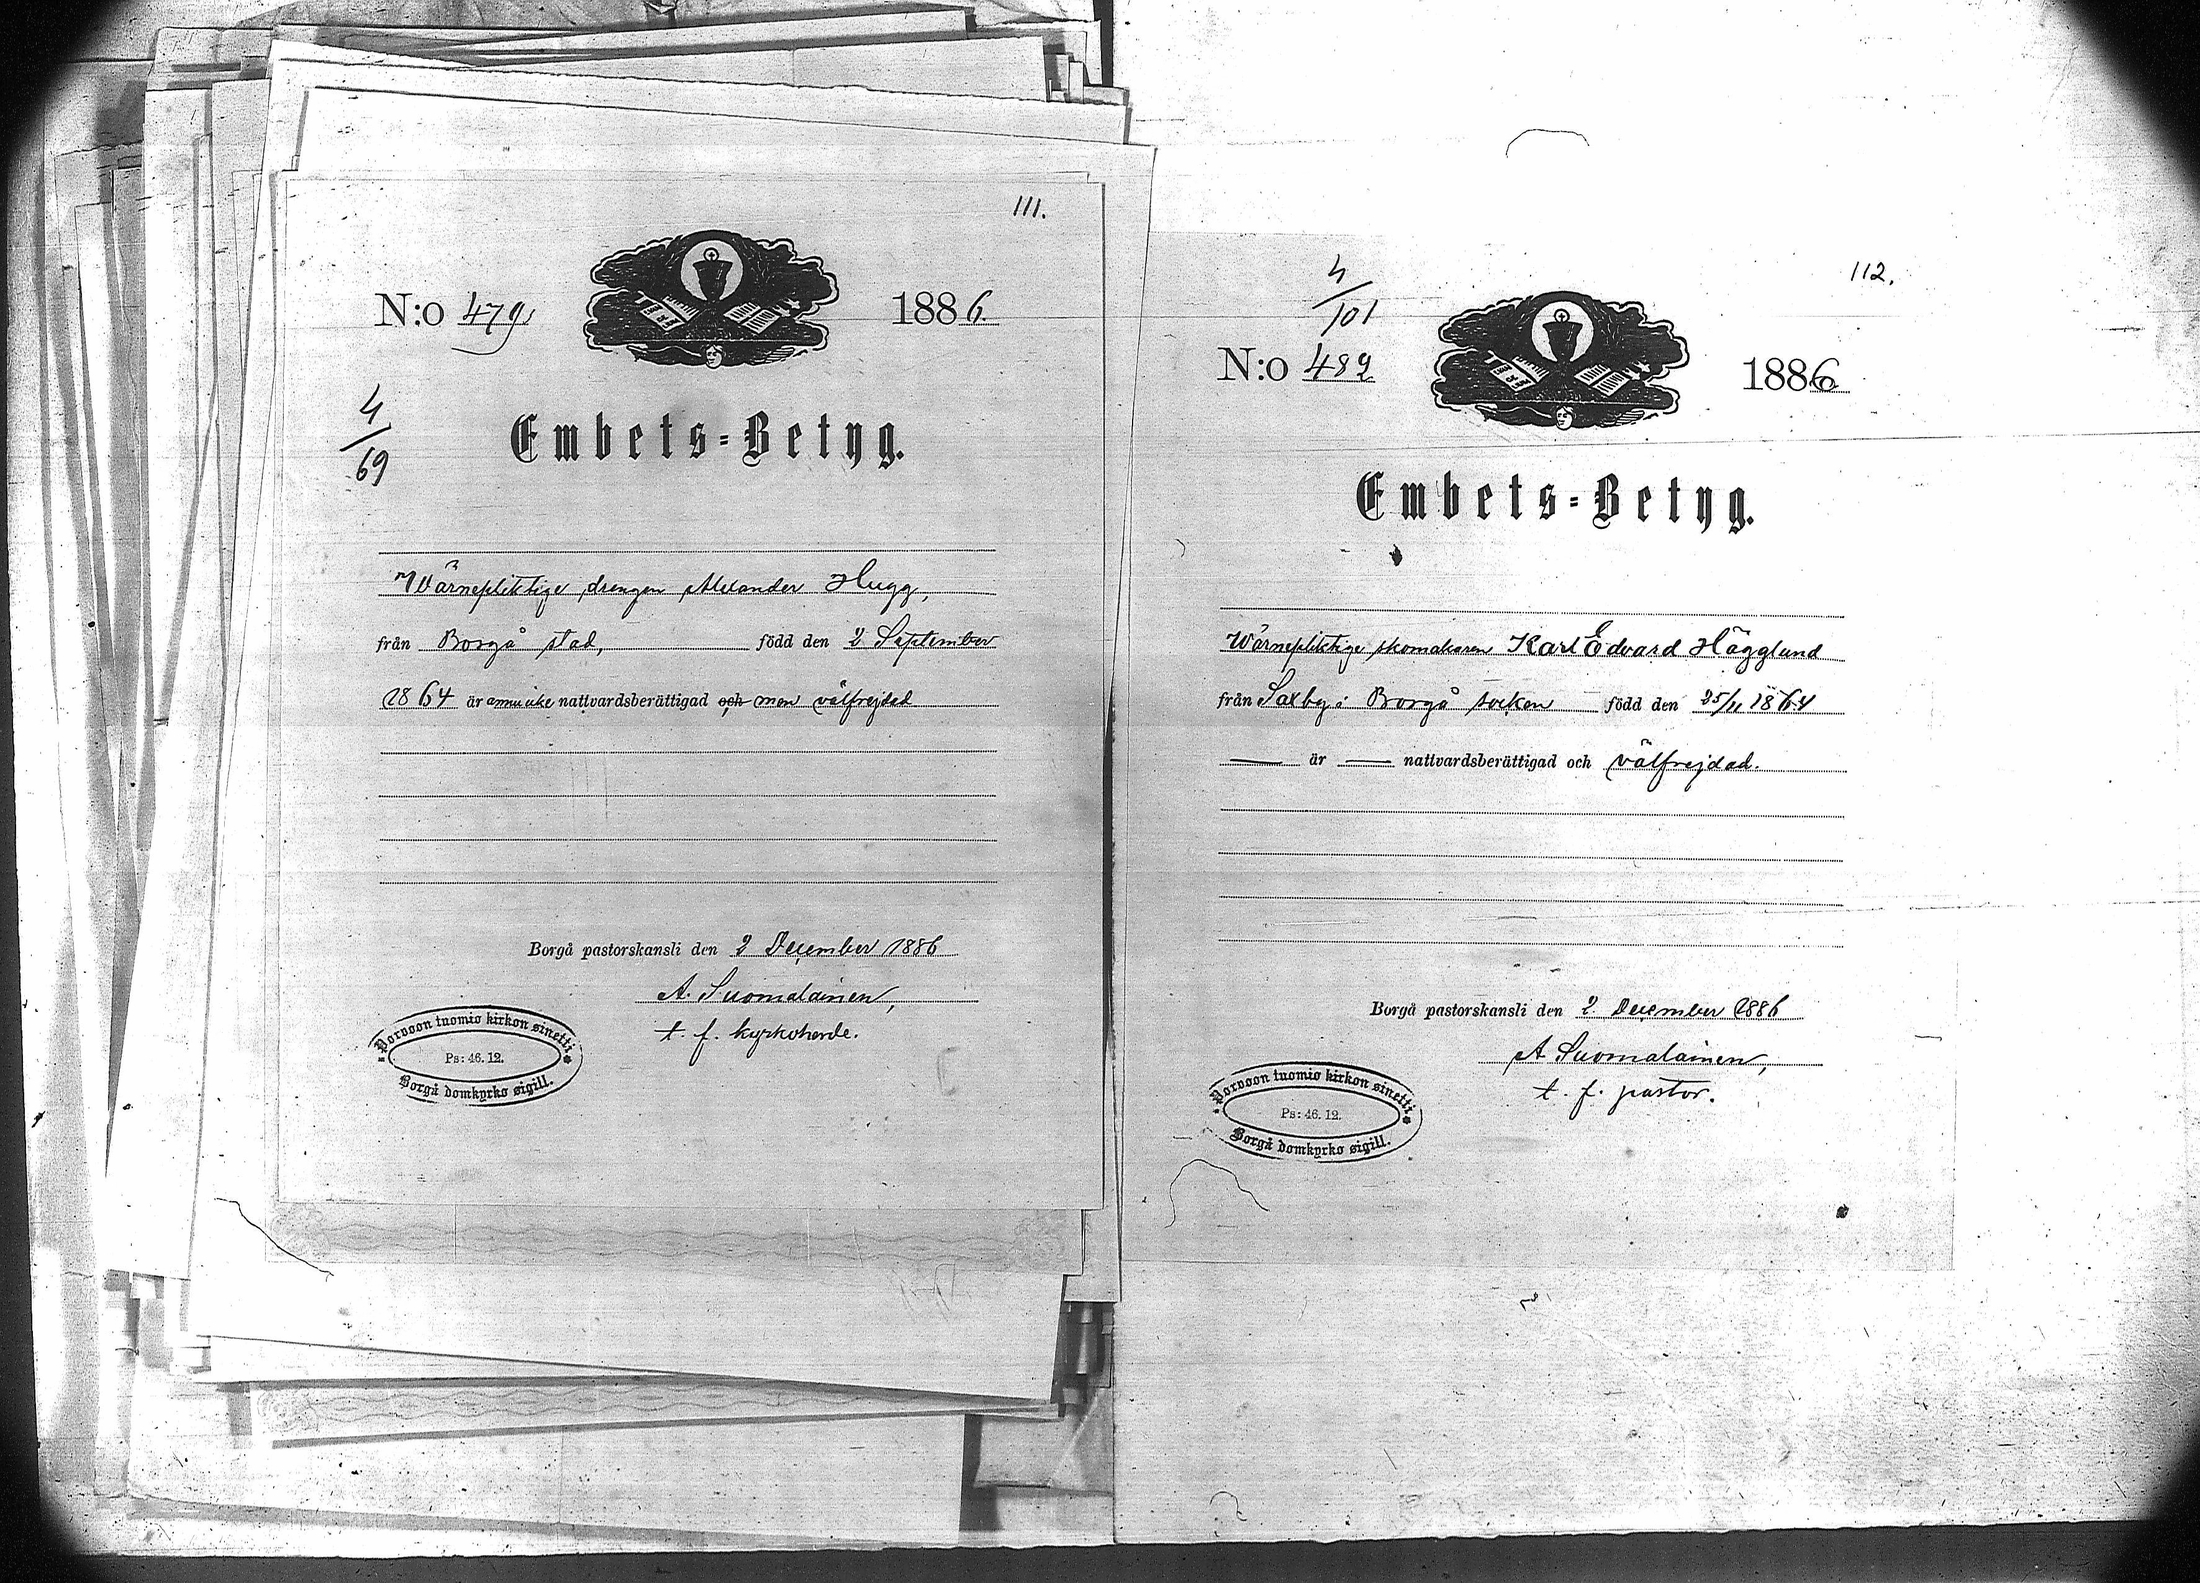 111.
N:o 479
1886.
4/69
Embets=Betyg.
Wärnepliktige drengen Alexander Hugg,
från Borgå stad, född den 2 September
1864 är ännu icke nattvardsberättigad och men välfrejdad
Borgå pastorskansli den 2 December 1886
A. Suomalainen,
t. f. kyrkoherde.
Porvoon tuomio kirkon sinetti
Ps: 46. 12.
Borgå domkyrko sigill.
112.
4/101
N:o 482
1886
Embets=Betyg.
Wärnepliktige skomakaren Karl Edvard Hägglund
från Saxby i Borgå socken född den 25/11 1864
är nattvardsberättigad och välfrejdad.
Borgå pastorskansli den 2. December 1886
A Suomalainen,
t. f. pastor.
Porvoon tuomio kirkon sinetti
Ps: 46. 12.
Borgå domkyrko sigill.